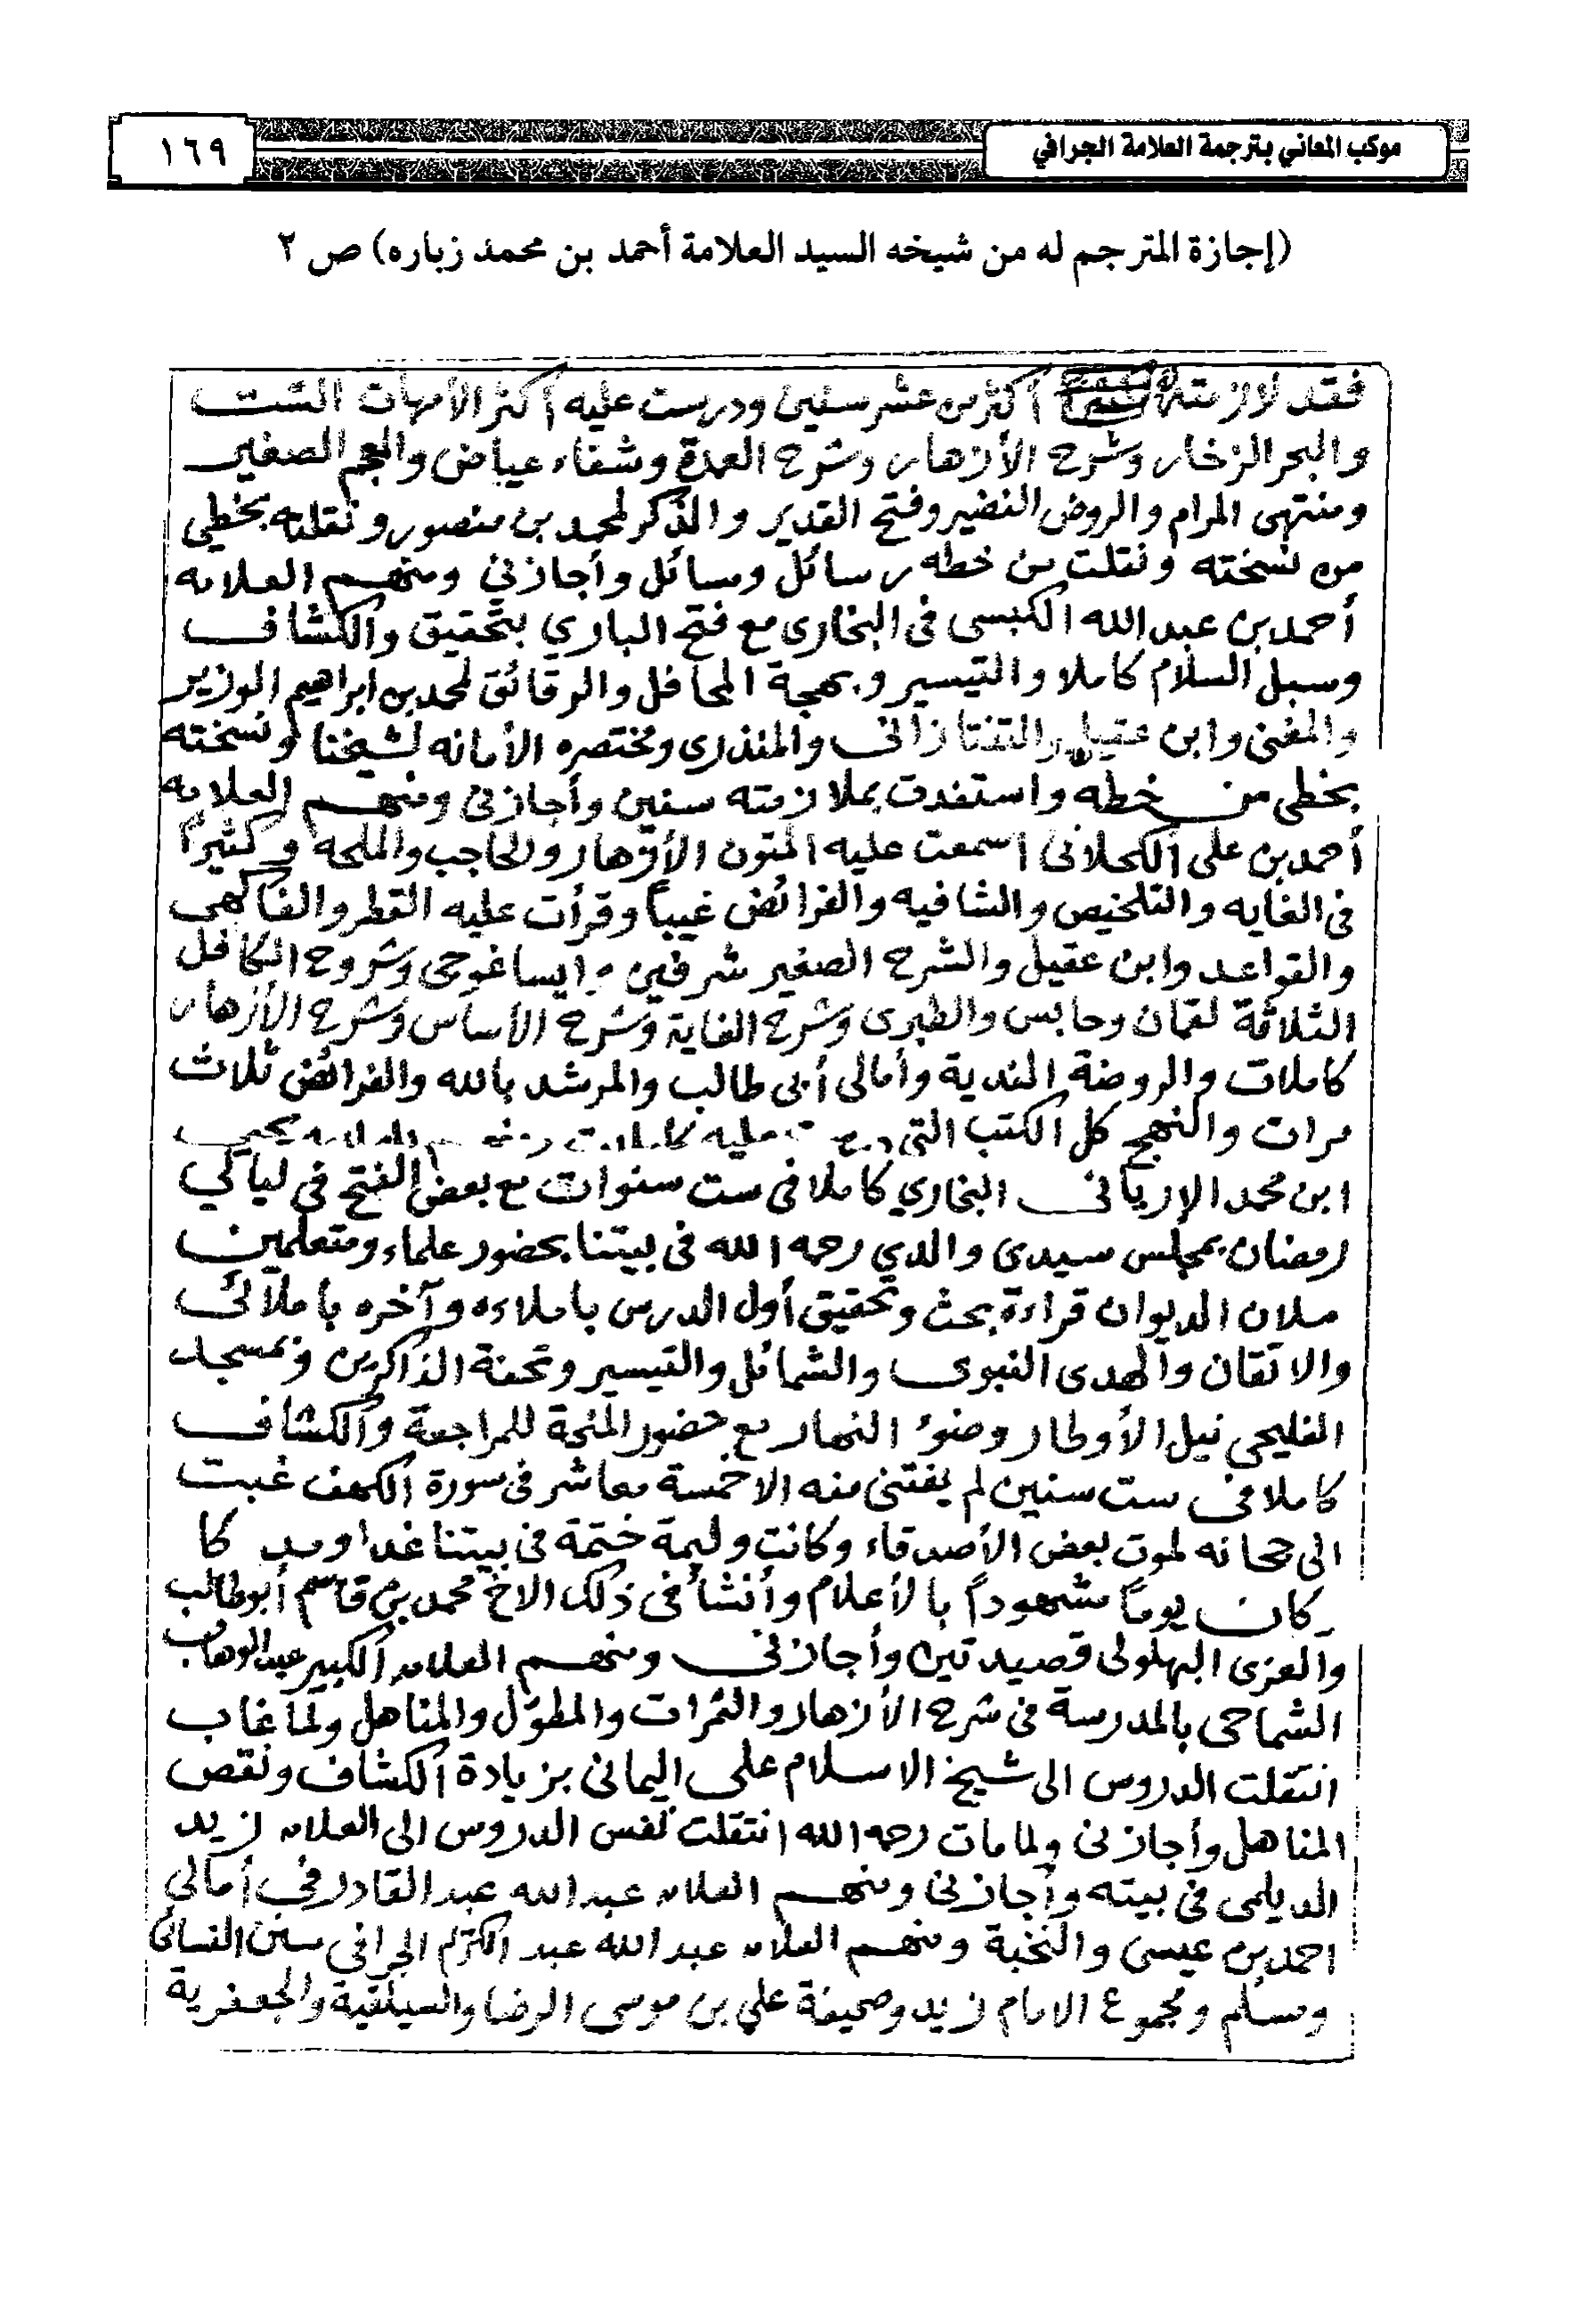 موكب المعاني بترجمة العلامة الجرافي
١٦٩
(إجازة المترجم له من شيخه السيد العلامة أحمد بن محمد زباره) ص ٢
فقد لازمته أكثر من عشر سنين ودرست عليه أكثر الأمهات الست
والبحر الزخار وشرح الأزهار وشرح العمدة وشفاء عياض والمعجم الصغير
ومنتهى المرام والروض النضير وفتح القدير والذكر لمحمد بن منصور ونقلته بخطي
من نسخته ونقلت من خطه رسائل ومسائل وأجازني ومنهم العلامه
أحمد بن عبد الله الكبسي في البخاري مع فتح الباري بتحقيق والكشاف
وسبل السلام كاملا والتيسير وبهجة المحافل والرقائق لمحمد بن ابراهيم الوزير
والمغني وابن عقيل والتفتازاني والمنذري ومختصره الأمانه لشيخنا ونسخته
بخطي من خطه واستفدت بملازمته سنين وأجازني ومنهم العلامه
أحمد بن علي الكحلاني اسمعت عليه المتون الأزهار والحاجب والملحه وكثيراً
في الغايه والتلخيص والشافيه والفرائض غيباً وقرأت عليه القطر والفاكهي
والقواعد وابن عقيل والشرح الصغير شرفين وايساغوجي وشروح الكافل
الثلاثة لقمان وحابس والطبري وشرح الغاية وشرح الأساس وشرح الأزهار
كاملات والروضة الندية وأمالي أبي طالب والمرشد بالله والفرائض ثلاث
مرات والنهج كل الكتب التي عليه كاملات ومنهم العلامه يحيى
ابن محمد الإرياني البخاري كاملا في ست سنوات مع بعض الفتح في ليالي
رمضان بمجلس سيدي والدي رحمه الله في بيتنا بحضور علماء ومتعلمين
ملان الديوان قراءة بحث وتحقيق أول الدرس باملاءه وآخره باملائي
والاتقان والهدى النبوي والشمائل والتيسير وتحفة الذاكرين وبمسجد
الفليحي نيل الأوطار وضوء النهار مع حضور المنحة للمراجعة والكشاف
كاملا في ست سنين لم يفتني منه الا خمسة معاشر في سورة الكهف غبت
الى جحانه لموت بعض الأصدقاء وكانت وليمة ختمة في بيتنا غدا
كان يوماً مشهوداً بالأعلام وأنشأ في ذلك الاخ محمد بن قاسم أبوطالب
والعزي البهلولي قصيدتين وأجازني ومنهم العلامه الكبير عبد الوهاب
الشماحي بالمدرسة في شرح الأزهار والثمرات والمطوّل والمناهل ولما غاب
انتقلت الدروس الى شيخ الاسلام علي اليماني بزيادة الكشاف ونقص
المناهل وأجازني ولما مات رحمه الله انتقلت نفس الدروس الى العلامه زيد
الديلمي في بيته وأجازني ومنهم العلامه عبد الله عبد القادر في أمالي
احمد بن عيسى والنخبة ومنهم العلامه عبد الله عبد الكريم الجرافي سنن النسائي
ومسلم ومجموع الامام زيد وصحيفة علي بن موسى الرضا والسيلقية والجعفرية